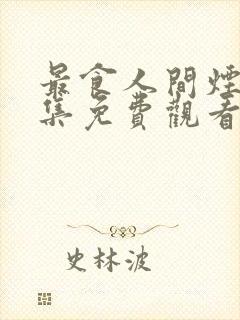 最食人間煙
集免費觀看
史林波